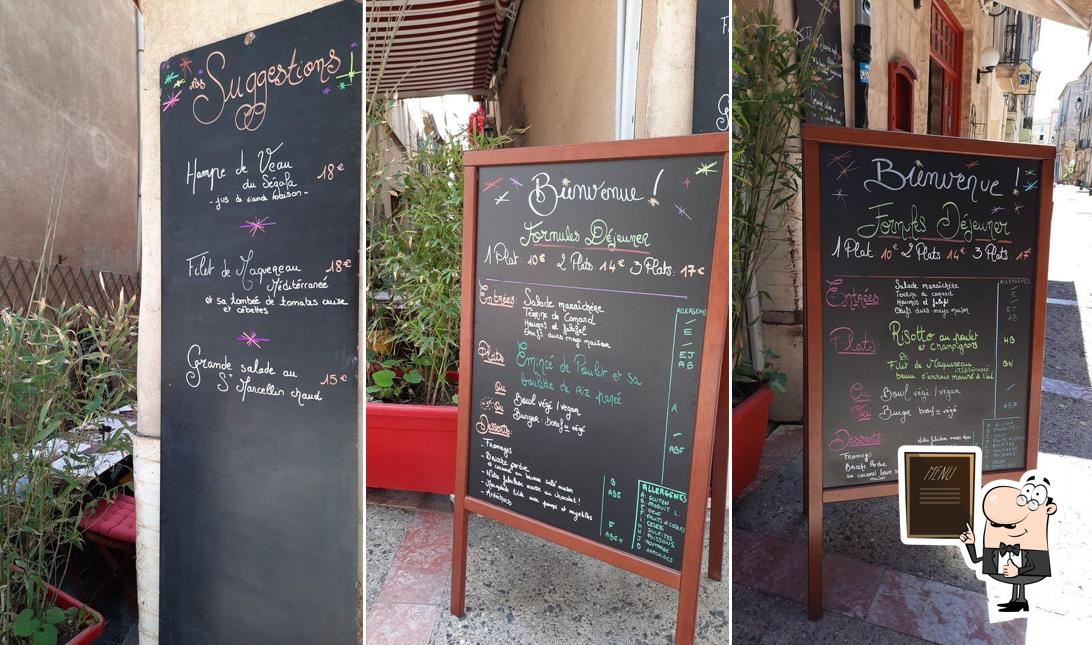 nos Suggestions !
Hampe de Veau
du Ségala
- jus de viande maison -
18€
Filet de Maquereau
Méditerranée
18€
et sa tombée de tomates cerise
et cébettes
Grande salade au
St Marcellin chaud
15€
Bienvenue !
Formules Déjeuner
1 Plat: 10€ 2 Plats 14€ 3 Plats: 17€
Entrées: Salade maraîchère
Terrine de Canard
Houmos et falafel
Oeufs durs mayo maison
ALLERGENES
E
EJ
AB
Plats
Emincé de Poulet et sa
boulette de riz panée
A
Ou Bowl végé / vegan
Ou Burger: boeuf ou végé
ABF
Desserts:
- Fromages
- Brioche perdue
- Notre fabuleuse mousse au chocolat !
ALLERGENES
A: GLUTEN
Bienvenue !
Formules Déjeuner
1 Plat: 10€ 2 Plats 14€ 3 Plats 17€
Entrées:
Salade maraîchère
Terrine de canard
Houmos et falafel
Oeufs durs mayo maison
ALLERGENES
E
EJ
AB
Plats:
Risotto au poulet
et champignons
HB
ou
Filet de Maquereau
Méditerranée
BN
Ou Bowl végé / vegan
Ou Burger boeuf ou végé
ABF
Desserts
Fromages
Brioche Perdue
A: GLUTEN
MENU